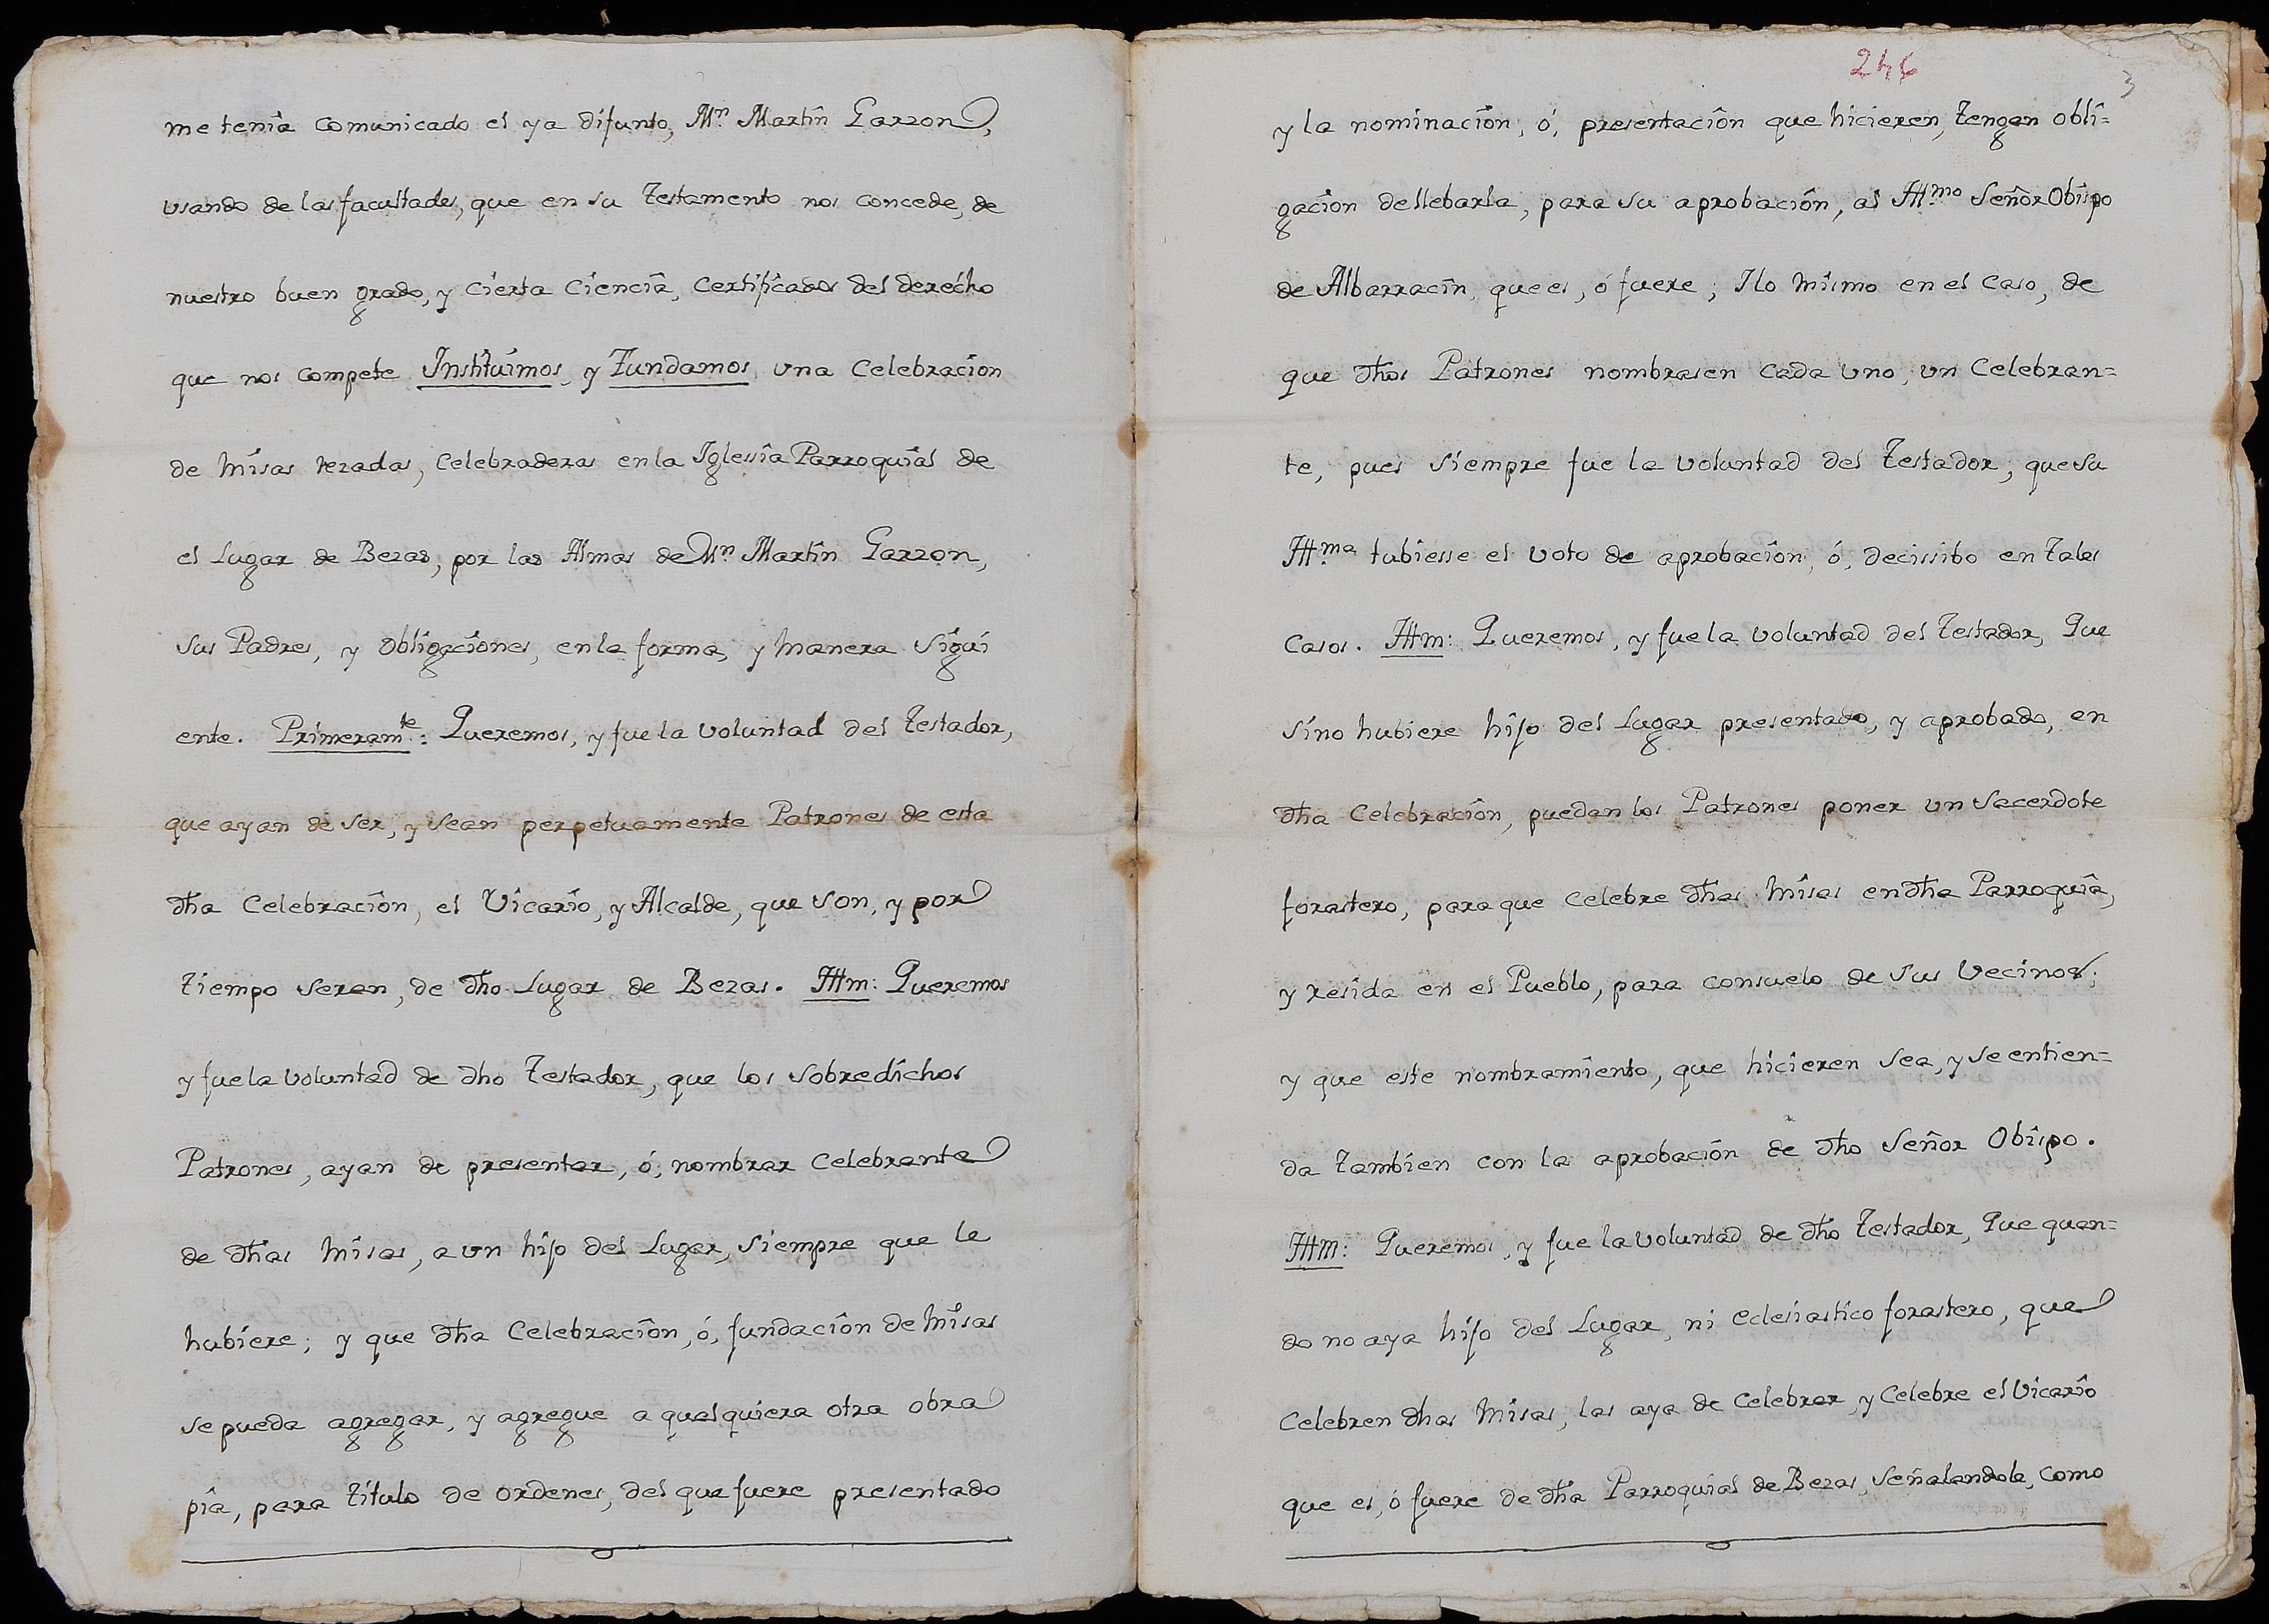 me tenia comunicado el ya difunto, Mn Martin Garzon,
usando de las facultades, que en su Testamento nos concede, de
nuestro buen grado, y cierta ciencia, certificados del derecho
que nos compete Instituimos, y Fundamos, una Celebracion
de Misas rezadas, celebraderas en la Iglessia Parroquial de
el Lugar de Bezas, por las Almas de Mn Martin Garzon,
sus Padres, y obligaciones, en la forma, y manera sigui
ente. Primeramte: Queremos, y fue la voluntad del Testador,
que ayan de ser, y sean perpetuamente Patrones de esta
dha Celebracion, el Vicario, y Alcalde, que son, y por
tiempo seran, de dho Lugar de Bezas. Ittm: Queremos
y fue la voluntad de dho Testador, que los sobredichos
Patrones, ayan de presentar, ó, nombrar Celebrante
de dhas Misas, a un hijo del Lugar, siempre que le
hubiere; y que dha Celebracion, ó, fundacion de Misas
se pueda agregar, y agregue a qualquiera otra obra
pia, para titulo de ordenes, del que fuere presentado
246
3
y la nominacion, ó, presentacion que hicieren, tengan obli=
gacion de llebarla, para su aprobacion, al Ittmo Señor Obispo
de Albarracin, que es, ó fuere; I lo mismo en el caso, de
que dhos Patrones nombrasen cada uno, un Celebran=
te, pues siempre fue la voluntad del Testador, que su
Ittma tubiesse el voto de aprobacion, ó, decissibo en tales
casos. Ittm: Queremos, y fue la voluntad del Testador, Que
sino hubiere hijo del Lugar presentado, y aprobado, en
dha Celebracion, puedan los Patrones poner un Sacerdote
forastero, para que celebre dhas Misas en dha Parroquia,
y resida en el Pueblo, para consuelo de sus Vecinos;
y que este nombramiento, que hicieren sea, y se entien=
da tambien con la aprobacion de dho Señor Obispo.
Ittm: Queremos, y fue la voluntad de dho Testador, Que quan=
do no aya hijo del Lugar, ni eclesiastico forastero, que
Celebren dhas Misas, las aya de Celebrar, y Celebre el Vicario
que es, ó fuere de dha Parroquial de Bezas, señalandole, como